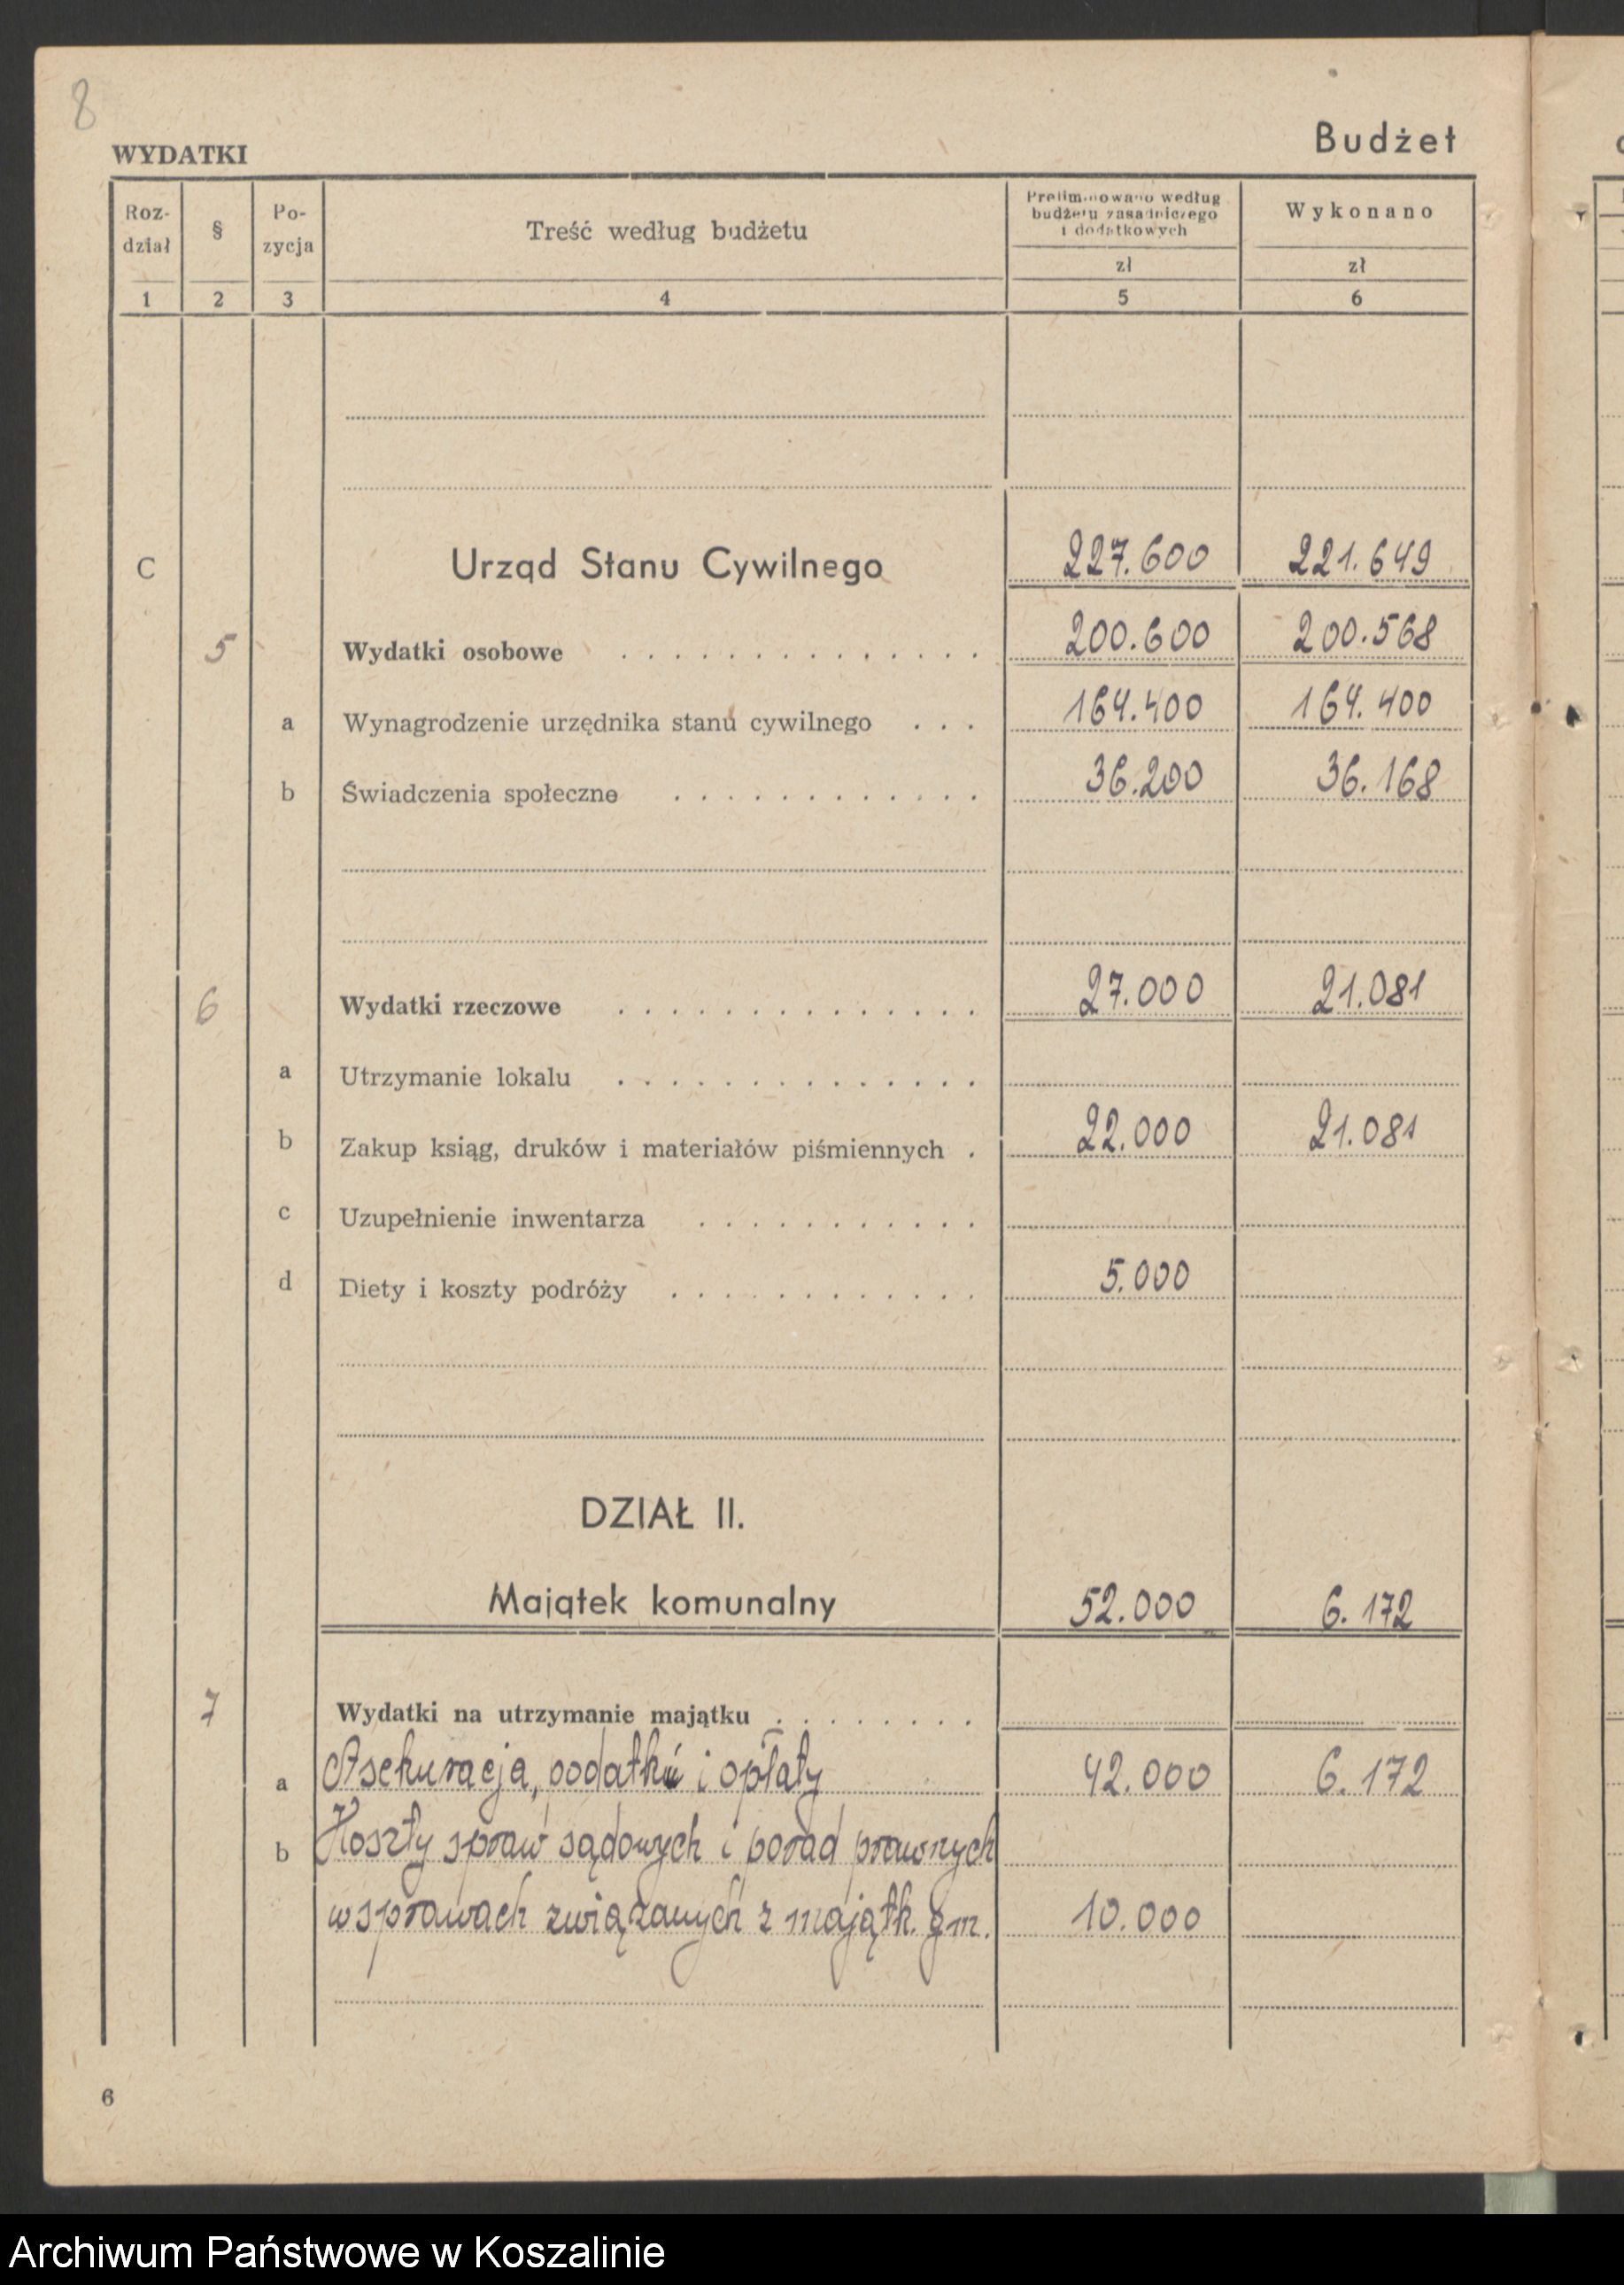 8
WYDATKI
Budżet
Roz-
dział
§
Po-
zycja
Treść według budżetu
Preliminowano według
budżetu zasadniczego
i dodatkowych
Wykonano
zł
zł
1 2 3 4 5 6
C Urząd Stanu Cywilnego 227.600 221.649
5 Wydatki osobowe . . . . . . . . . . . . . . 200.600 200.568
a Wynagrodzenie urzędnika stanu cywilnego . . . 164.400 164.400
b Świadczenia społeczne . . . . . . . . . . . . 36.200 36.168
6 Wydatki rzeczowe . . . . . . . . . . . . . . 27.000 21.081
a Utrzymanie lokalu . . . . . . . . . . . . . .
b Zakup ksiąg, druków i materiałów piśmiennych . 22.000 21.081
c Uzupełnienie inwentarza . . . . . . . . . . .
d Diety i koszty podróży . . . . . . . . . . . . 5.000
DZIAŁ II.
Majątek komunalny 52.000 6.172
7 Wydatki na utrzymanie majątku . . . . . . . .
a Asekuracja, podatki i opłaty 42.000 6.172
b Koszty spraw sądowych i porad prawnych
w sprawach związanych z majątk. gm. 10.000
6
Archiwum Państwowe w Koszalinie